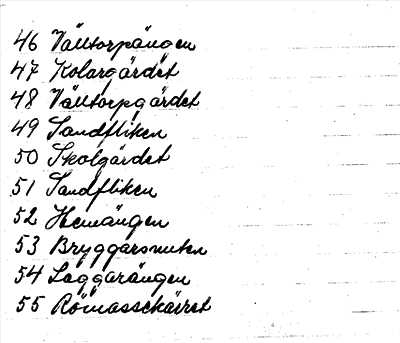 46 Välltorpängen
47 Kolargärdet
48 Välltorpgärdet
49 Sandfliken
50 Skolgärdet
51 Sandfliken
52 Hemängen
53 Bryggarsmuten
54 Laggarängen
55 Römossekärret